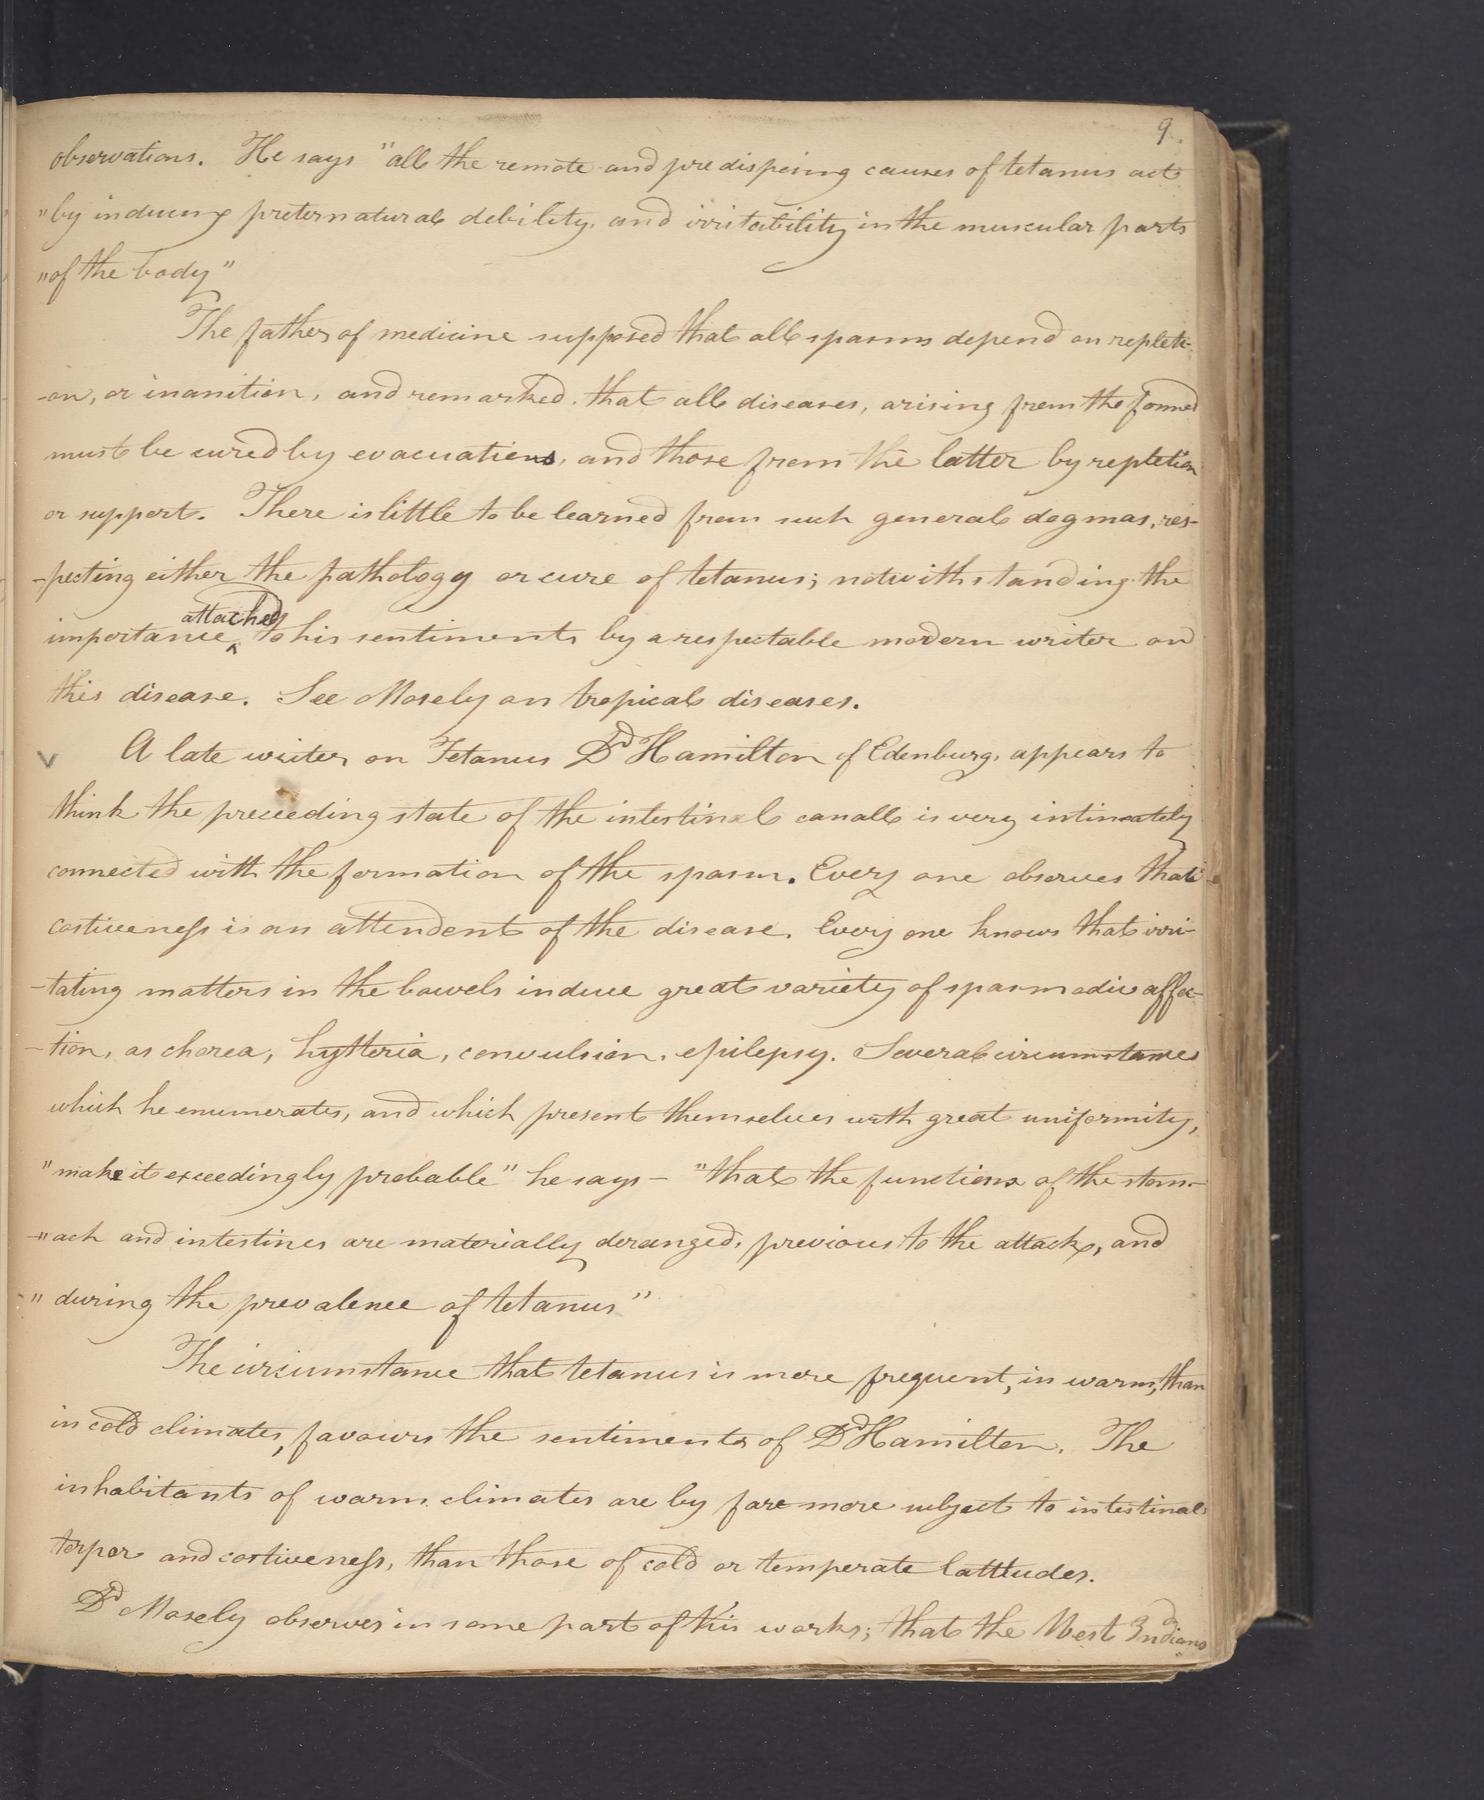 9.
observations. He says "all the remote and predisposing causes of tetanus act
"by inducing preternatural debility, and irritability in the muscular parts
"of the body"
The father of medicine supposed that all spasms depend on repleti-
-on, or inanition, and remarked, that all diseases, arising from the former
must be cured by evacuations, and those from the latter by repletion
or support. There is little to be learned from such general dogmas, res-
-pecting either the pathology or cure of tetanus; notwithstanding the
attached
importance ^ to his sentiments by a respectable modern writer on
this disease. See Mosely on tropical diseases.
V A late writer on Tetanus Dr Hamilton of Edenburg, appears to
think the preceeding state of the intestinal canall is very intimately
connected with the formation of the spasm. Every one observes that
costiveness is an attendent of the disease. Every one knows that irri-
-tating matters in the bowels induce great variety of spasmodic affec-
-tion, as chorea, hysteria, convulsion, epilepsy. Several circumstances
which he enumerates, and which present themselves with great uniformity,
"make it exceedingly probable" he says - "that the functions of the stom-
-"ach and intestines are materially deranged, previous to the attack, and
-" during the prevalence of tetanus"
The circumstance that tetanus is more frequent, in warm, than
in cold climates, favours the sentiments of Dr Hamilton. The
inhabitants of warm climates are by fare more subject to intestinal
torpor and costiveness, than those of cold or temperate lattitudes.
Dr Mosely observes in some part of his works; that the West Indians